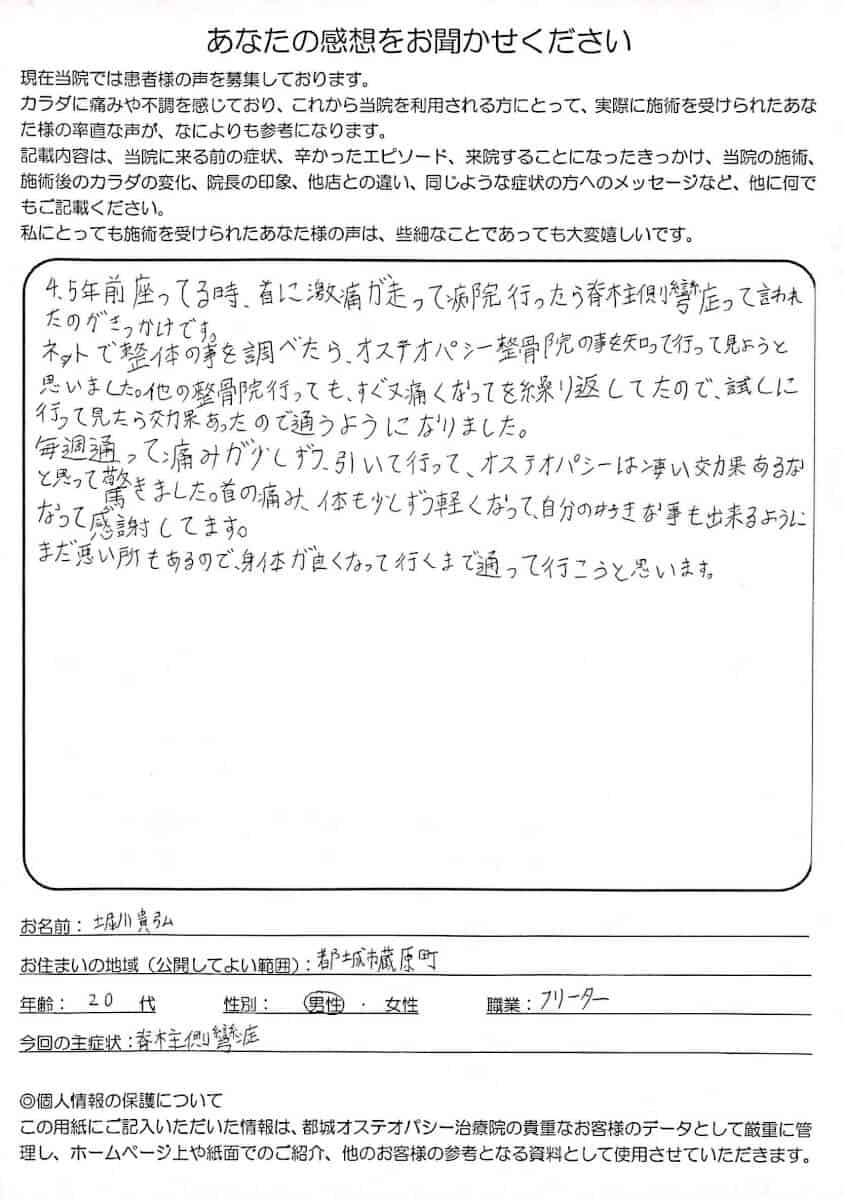 あなたの感想をお聞かせください
現在当院では患者様の声を募集しております。
カラダに痛みや不調を感じており、これから当院を利用される方にとって、実際に施術を受けられたあな
た様の率直な声が、なによりも参考になります。
記載内容は、当院に来る前の症状、辛かったエピソード、来院することになったきっかけ、当院の施術、
施術後のカラダの変化、院長の印象、他店との違い、同じような症状の方へのメッセージなど、他に何で
もご記載ください。
私にとっても施術を受けられたあなた様の声は、些細なことであっても大変嬉しいです。
4.5年前座ってる時、首に激痛が走って病院行ったら脊柱側彎症って言われ
たのがきっかけです。
ネットで整体の事を調べたら、オステオパシー整骨院の事を知って行って見ようと
思いました。他の整骨院行っても、すぐ又痛くなってを繰り返してたので、試しに
行って見たら効果あったので通うようになりました。
毎週通って痛みが少しずつ引いて行って、オステオパシーは凄い効果あるな
と思って驚きました。首の痛み、体も少しずつ軽くなって、自分の好きな事も出来るように
なって感謝してます。
まだ悪い所もあるので、身体が良くなって行くまで通って行こうと思います。
お名前：堀川貴弘
お住まいの地域（公開してよい範囲）：都城市蔵原町
年齢： 20 代 性別： 男性 ・ 女性 職業：フリーター
今回の主症状：脊柱側彎症
◎個人情報の保護について
この用紙にご記入いただいた情報は、都城オステオパシー治療院の貴重なお客様のデータとして厳重に管
理し、ホームページ上や紙面でのご紹介、他のお客様の参考となる資料として使用させていただきます。